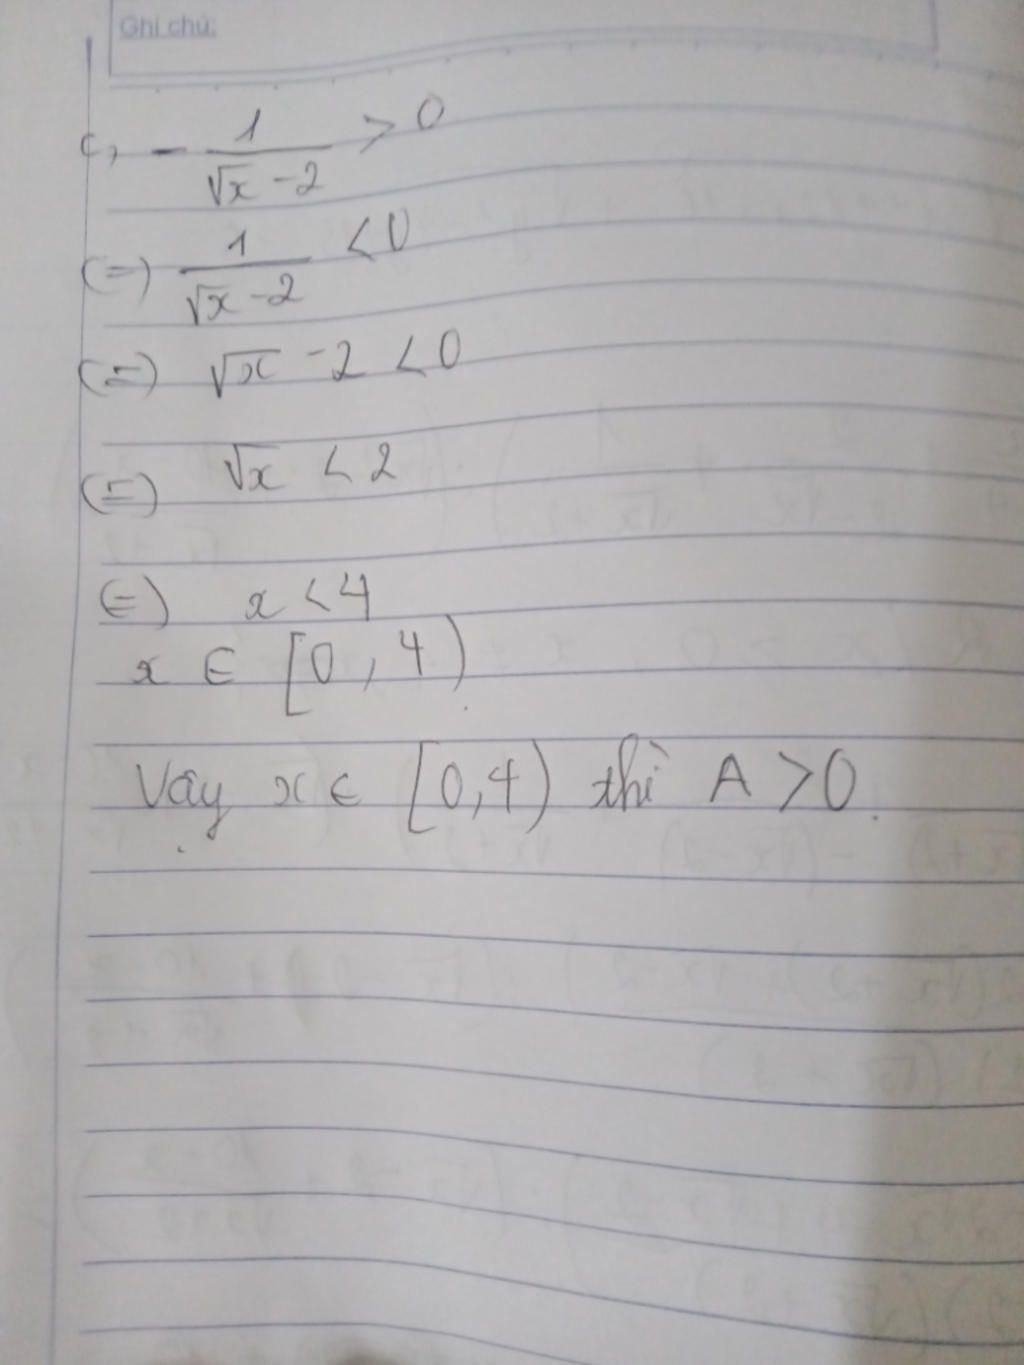 Ghi chú:
c, - 1/(√x - 2) > 0
(=) 1/(√x - 2) < 0
(=) √x - 2 < 0
(=) √x < 2
(=) x < 4
x ∈ [0, 4)
Vậy x ∈ [0,4) thì A > 0.